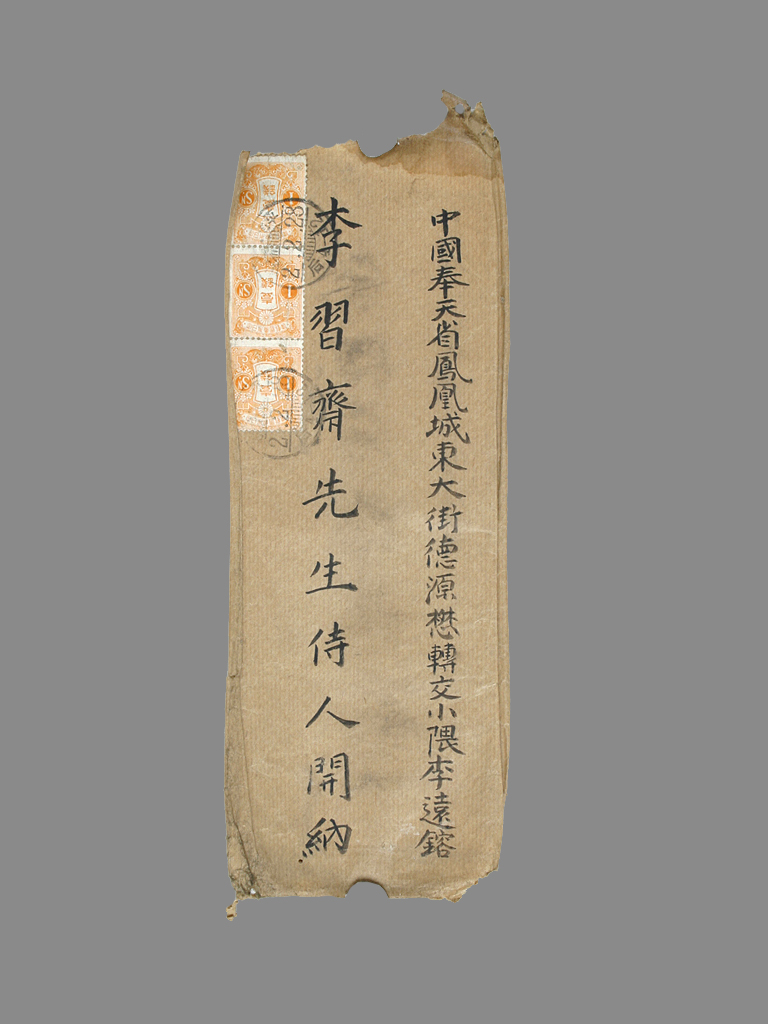 中國奉天省鳳凰城東大街德源懋轉交小隈李遠鎔
李習齋先生侍人開納
2.2.28